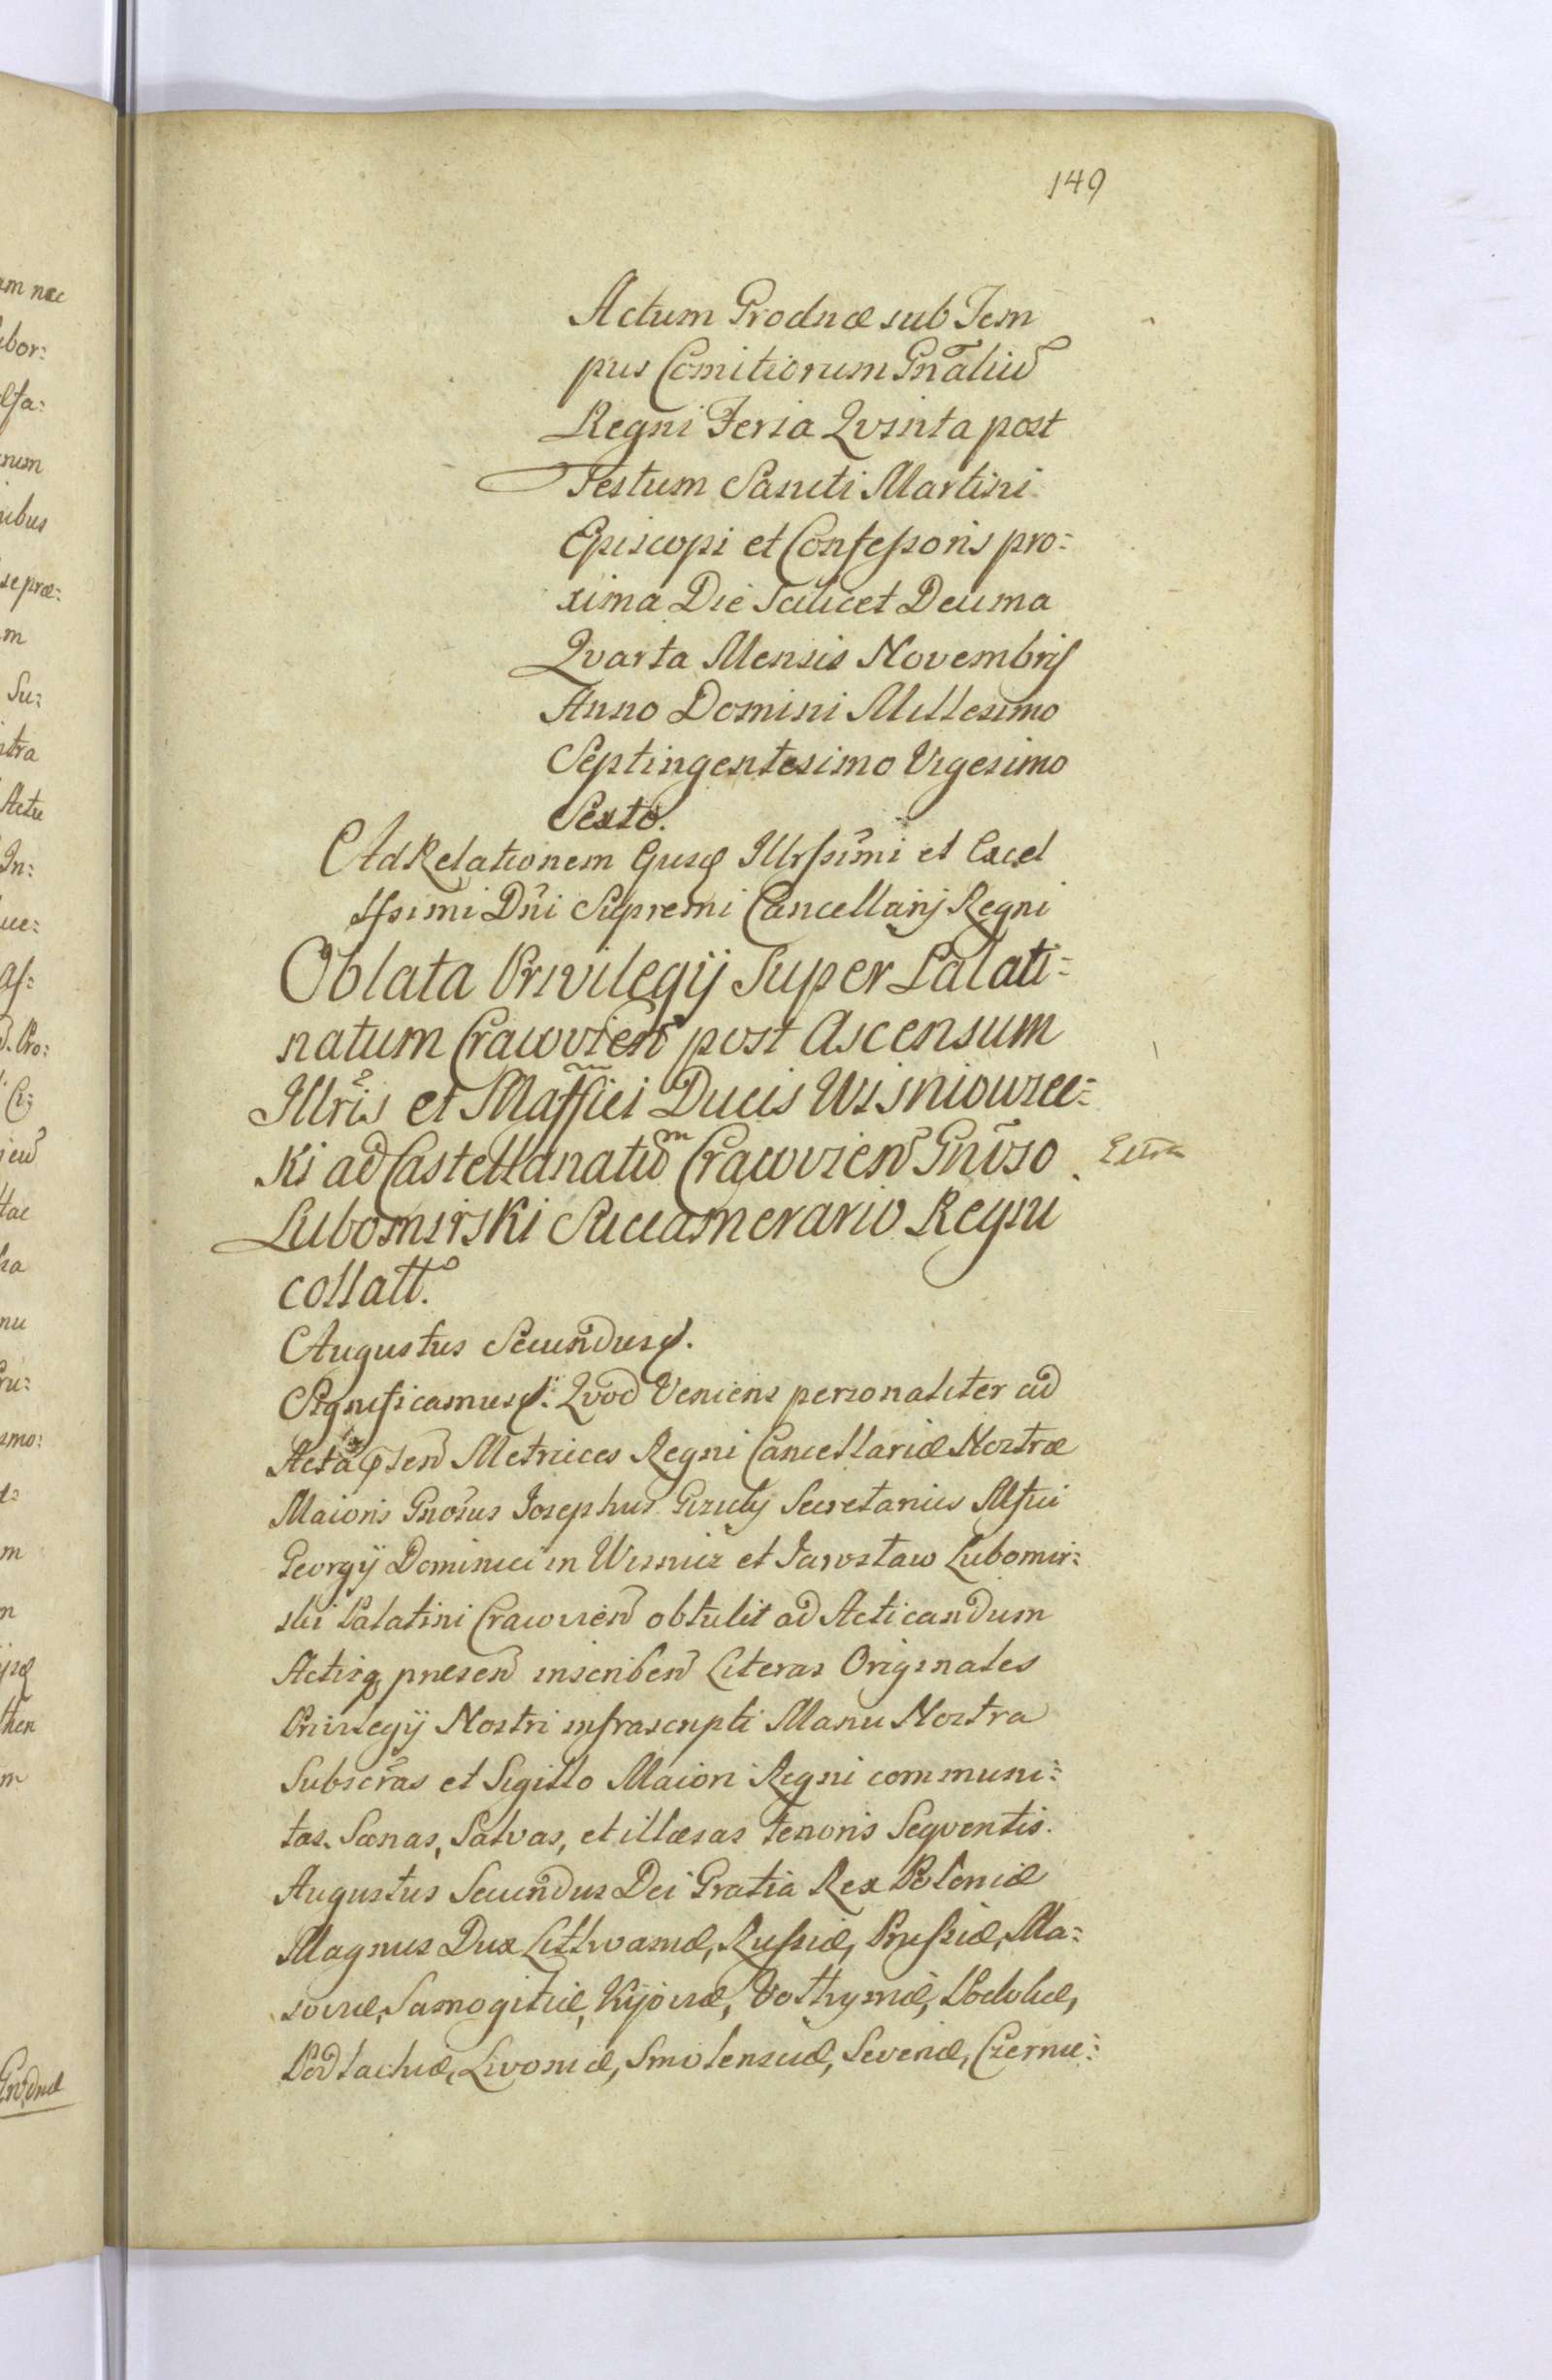 149
Actum Grodnæ sub Tem
pus Comitiorum Gn̄aliū
Regni Feria Qvinta post
Festum Sancti Martini
Episcopi et Confeſsoris pro:
xima Die Scilicet Decima
Qvarta Mensis Novembris
Anno Domini Millesimo
Septingentesimo Vigesimo
Sexto.
Ad Relationem Ejusd Illrſsimi et Excel
lſsimi Dn̄i Supremi Cancellarij Regni
Oblata Privilegij Super Palati=
natum Cracovien̄ post Ascensum
Illris et Maffici Ducis Wisniowiec=
ki ad Castellanatūm Cracovien̄ Gn̄oso
Lubomirski Succamerario Regni
collatt.
Augustus Secundus.
Significamus. Qvod Veniens personaliter ad
Acta p̄sen̄ Metrices Regni Cancellariæ Nostræ
Maioris Gnosus Josephus Gizicly Secretarius Mſici
Georgij Dominici in Wisnicz et Jarosław Lubomir:
ski Palatini Cracovien̄ obtulit ad Acticandum
Actisq presen̄ inscriben̄ Literas Originales
Privilegij Nostri infrascripti Manu Nostra
Subscr̄as et Sigillo Maiori Regni communi:
tas. Sanas, Salvas, et illæsas tenoris Seqventis.
Augustus Secundus Dei Gratia Rex Poloniæ
Magnus Dux Lithvaniæ, Ruſsiæ, Pruſsiæ, Ma:
soviæ, Samogitiæ, Kijoviæ, Volhyniæ, Podoliæ,
Podlachiæ, Livoniæ, Smolensciæ, Severiæ, Czernie: